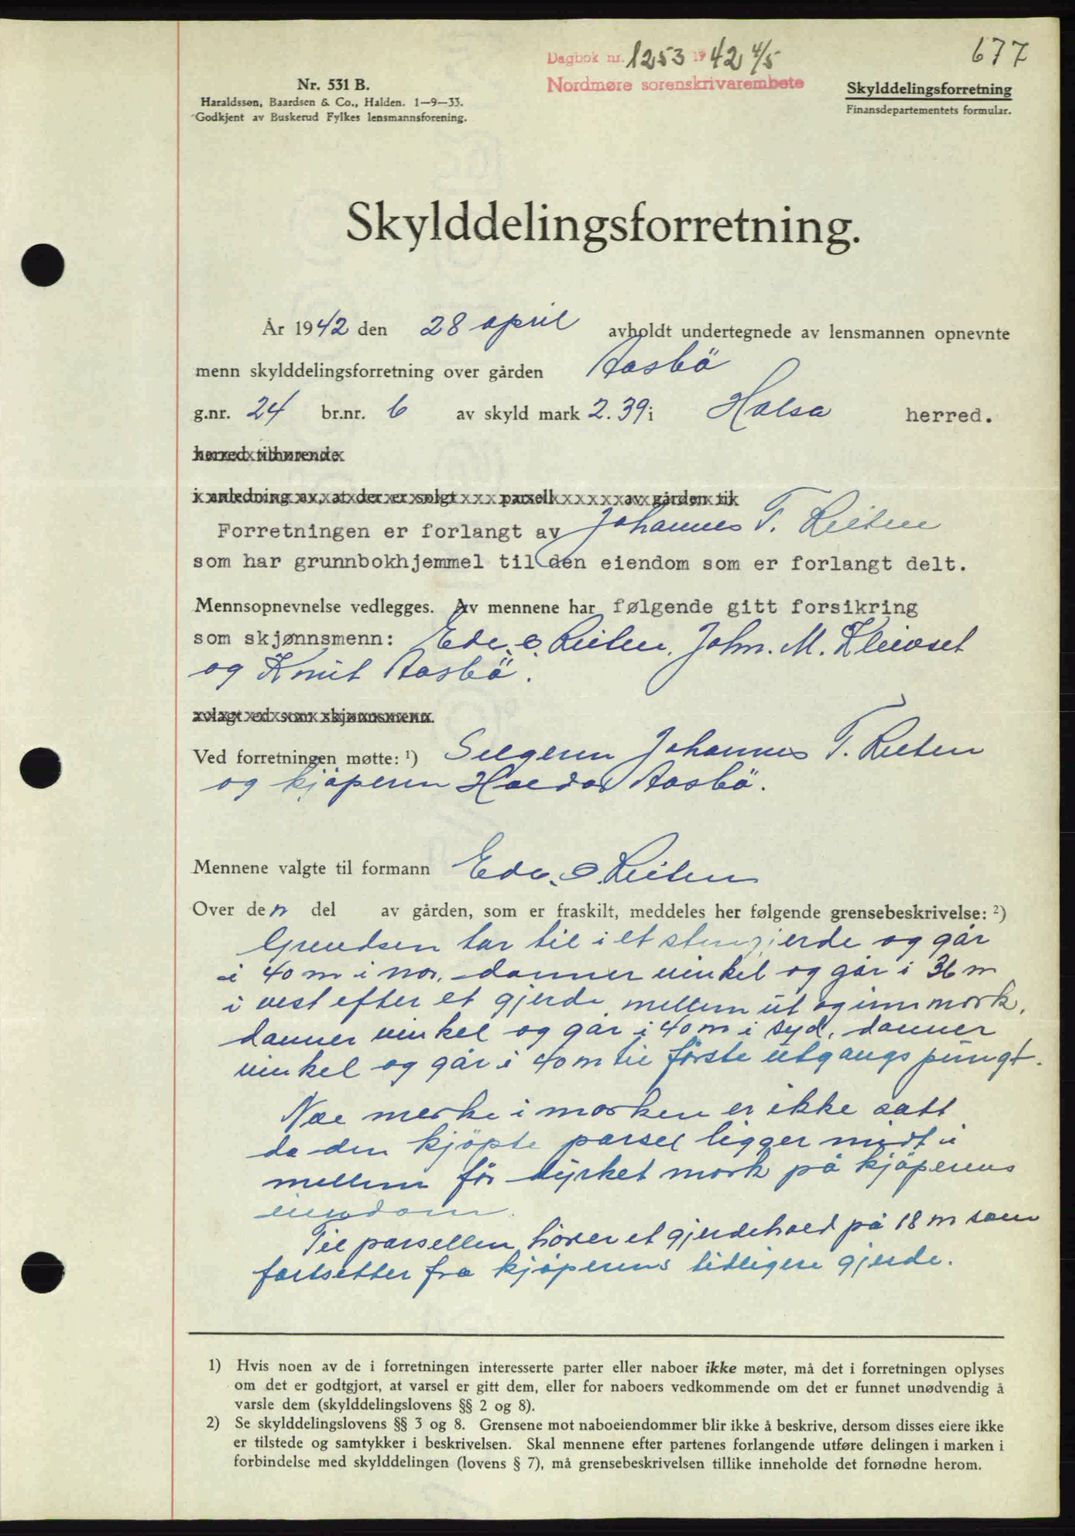 677
Dagbok nr. 1253 1942 4/5
Nordmøre sorenskrivarembete
Nr. 531 B.
Haraldssen, Baardsen & Co., Halden. 1—9—33.
Godkjent av Buskerud Fylkes lensmannsforening.
Skylddelingsforretning
Finansdepartementets formular.
Skylddelingsforretning.
År 1942 den 28 april avholdt undertegnede av lensmannen opnevnte
menn skylddelingsforretning over gården Aasbö
g.nr. 24 br.nr. 6 av skyld mark 2.39 i Halsa herred.
herred tilhørende
i anledning av, at der er solgt parsell av gården til
Forretningen er forlangt av Johannes T. Leiten
som har grunnbokhjemmel til den eiendom som er forlangt delt.
Mennsopnevnelse vedlegges. Av mennene har følgende gitt forsikring
som skjønnsmenn: Edv. O. Leiten, John. M. Kleivset
og Knut Aasbö.
avlagt ed som skjønnsmenn.
Ved forretningen møtte: 1) Selgeren Johannes T. Leiten
og kjöperen Haldor Aasbö.
Mennene valgte til formann Edv. O. Leiten
Over den del av gården, som er fraskilt, meddeles her følgende grensebeskrivelse: 2)
Grendsen tar til i et stengjerde og går
i 40 m i nor, danner vinkel og går i 36 m
i vest efter et gjerde mellem ut og innmark,
danner vinkel og går i 40 m i syd, danner
vinkel og går i 40 m til förste utgangspungt.
Noe merke i marken er ikke satt
da den kjöpte parsel ligger midt i
mellem för dyrket mark på kjöperens
eiendom.
Til parsellen hörer et gjerdehold på 18 m som
fortsetter fra kjöperens tidligere gjerde.
1) Hvis noen av de i forretningen interesserte parter eller naboer ikke møter, må det i forretningen oplyses
om det er godtgjort, at varsel er gitt dem, eller for naboers vedkommende om det er funnet unødvendig å
varsle dem (skylddelingslovens §§ 2 og 8).
2) Se skylddelingslovens §§ 3 og 8. Grensene mot naboeiendommer blir ikke å beskrive, dersom disses eiere ikke
er tilstede og samtykker i beskrivelsen. Skal mennene efter partenes forlangende utføre delingen i marken i
forbindelse med skylddelingen (lovens § 7), må grensebeskrivelsen tillike inneholde det fornødne herom.